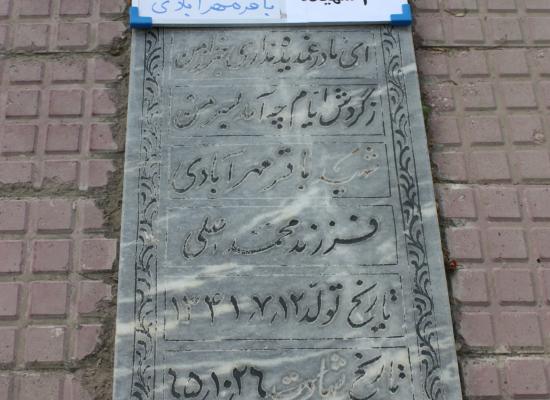 باقر مهرآبادی
ای مادر غمدیده نداری خبر از من
ز گردش ایام چه آمد بسر من
شهید باقر مهرآبادی
فرزند محمد علی
تاریخ تولد ۱۳۴۱٫۷٫۱۲
تاریخ شهادت ۶۵٫۱۰٫۲۶